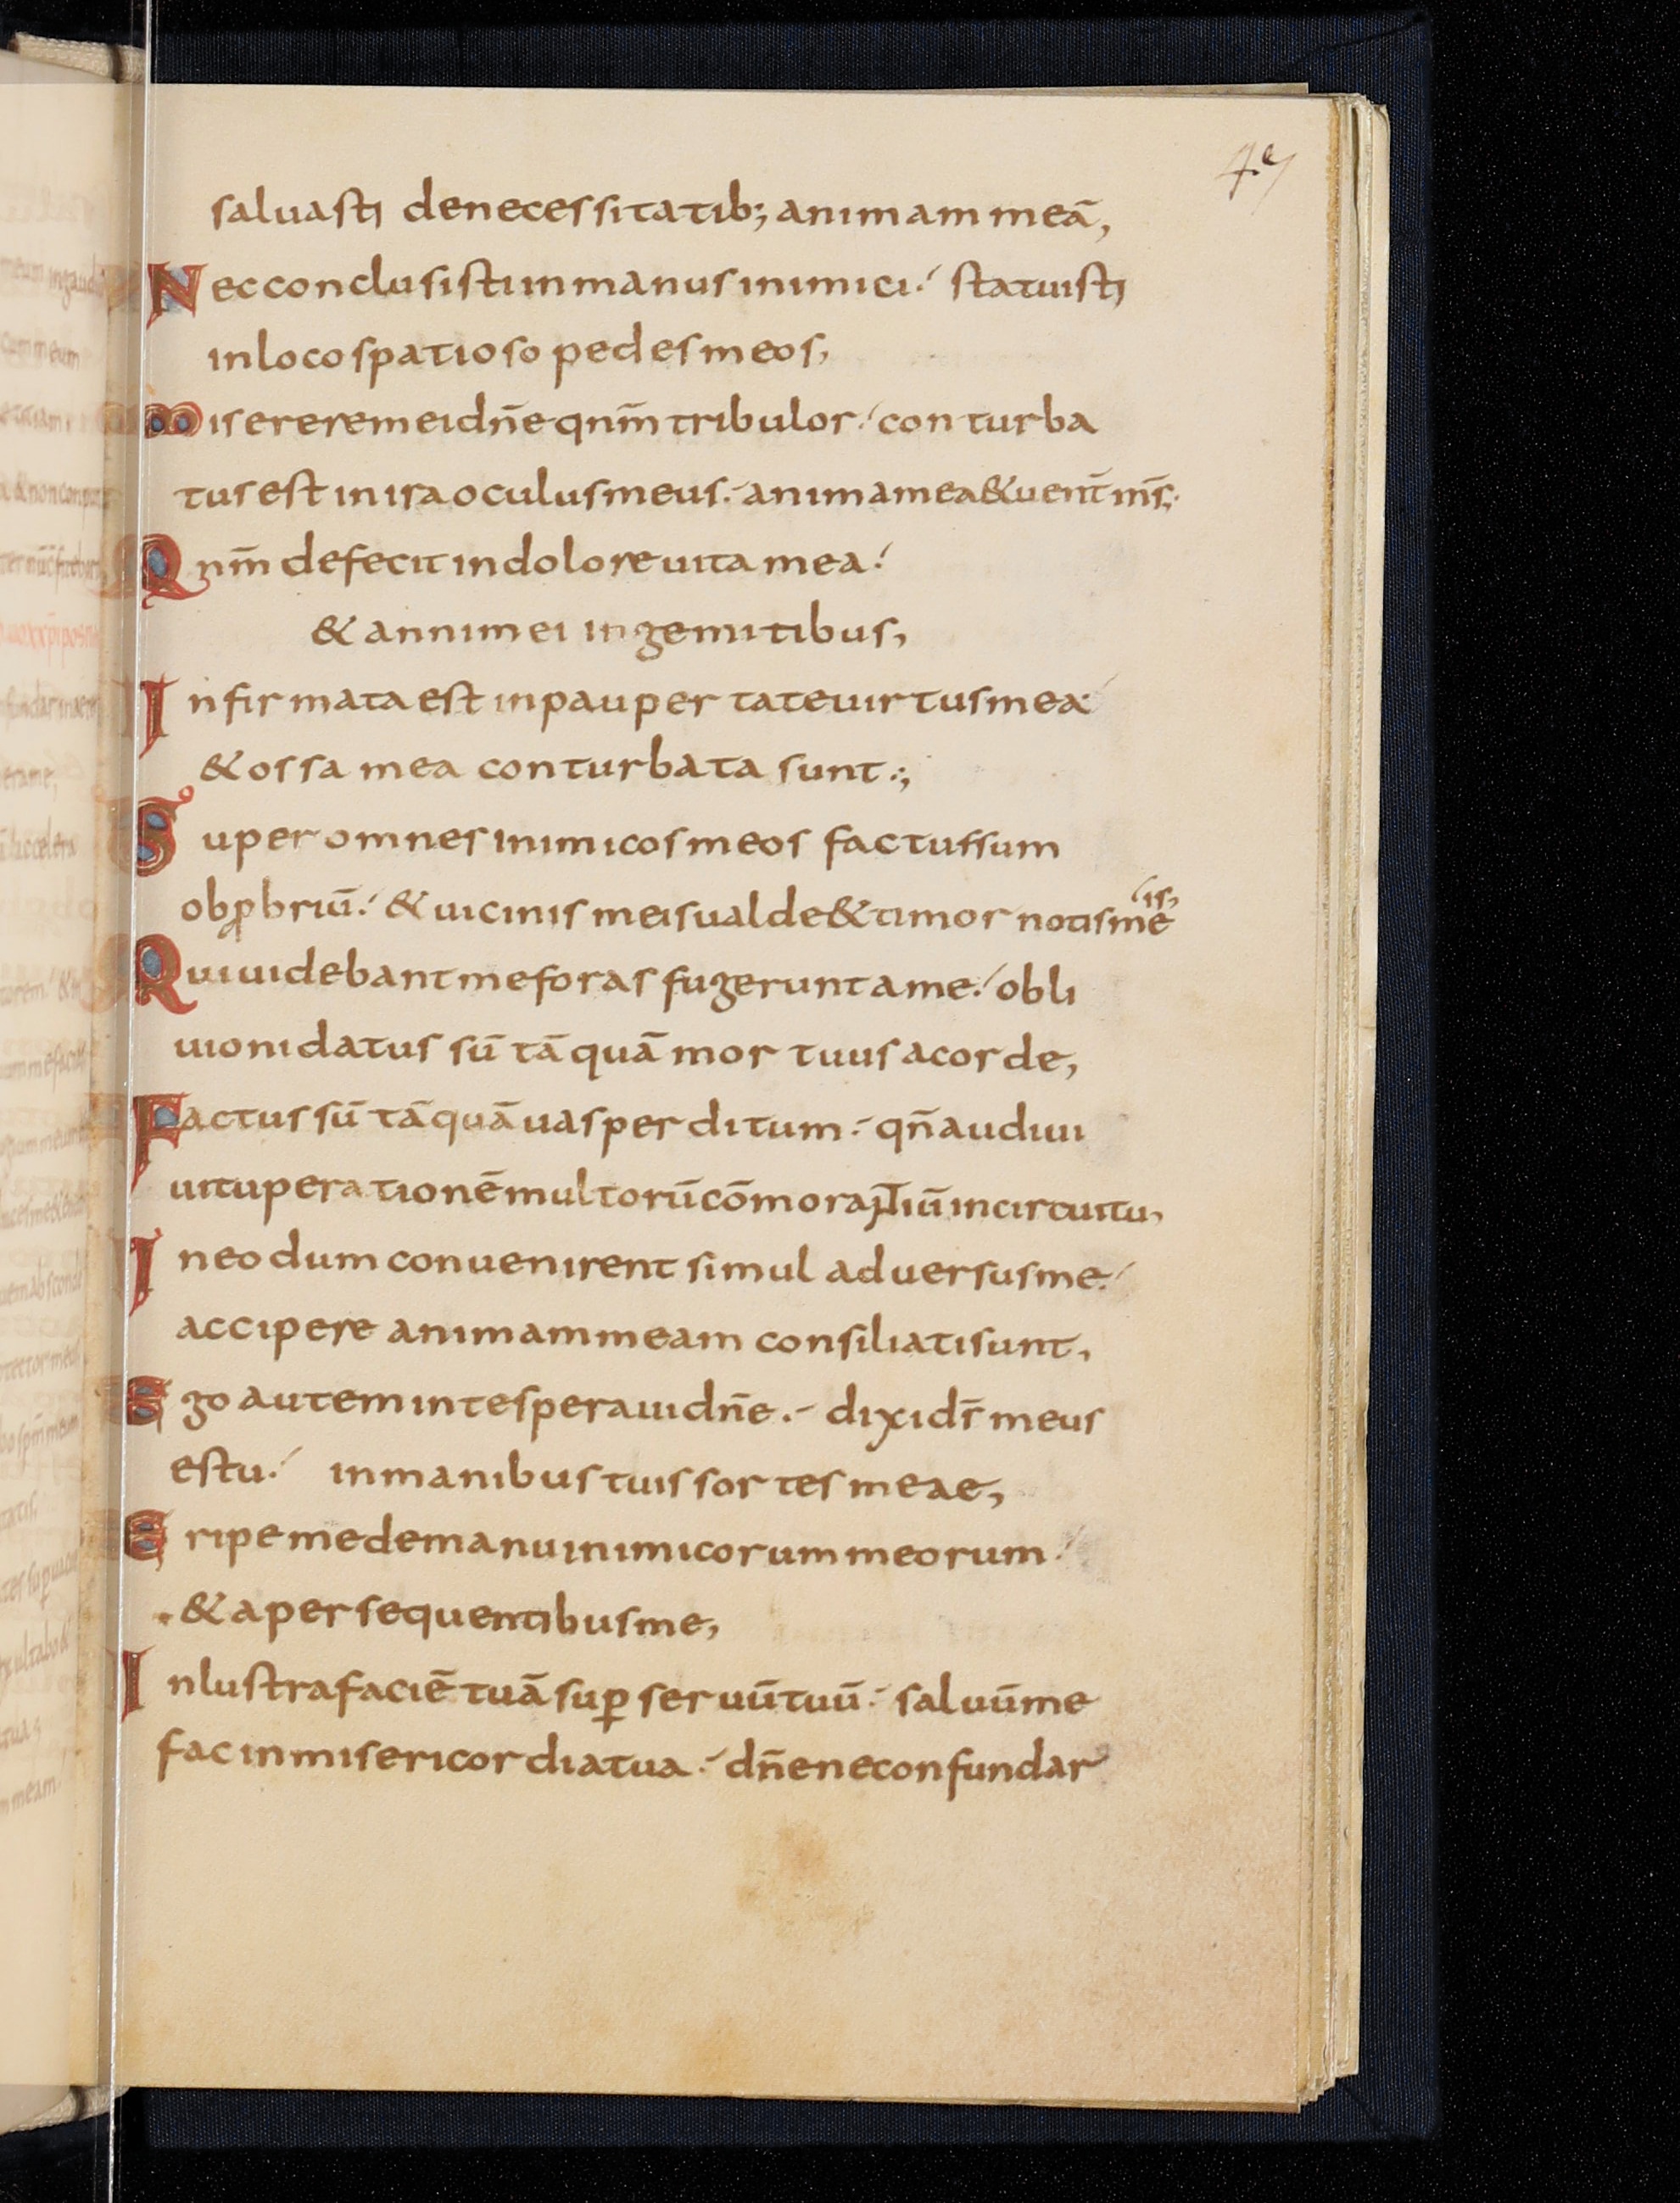 saluasti denecessitatib; animam meā,
Nec conclusisti in manus inimici. statuisti
in loco spatioso pedes meos,
Miserere mei dn̄e qnm̄ tribulor. conturba
tus est in ira oculus meus. anima mea & uent̄ ms̄;
Qnm̄ defecit in dolore uita mea.
& anni mei in gemitibus,
Infirmata est in paupertate uirtus mea.
& ossa mea conturbata sunt.,
Super omnes inimicos meos factus sum
obꝓbriū. & uicinis meis ualde & timor notis me
is,
Qui uidebant me foras fugerunt a me. obli
uioni datus sū tāquā mortuus a corde,
Factus sū tāquā uas perditum. qn̄ audiui
uituperationē multorū cōmorantiū in circuitu,
In eo dum conuenirent simul aduersus me.
accipere animam meam consiliati sunt,
Ego autem in te speraui dn̄e. dixi ds̄ meus
es tu. in manibus tuis sortes meae,
Eripe me de manu inimicorum meorum.
& a persequentibus me,
Inlustra faciē tuā suꝑ seruū tuū. saluū me
fac in misericordia tua. dn̄e ne confundar